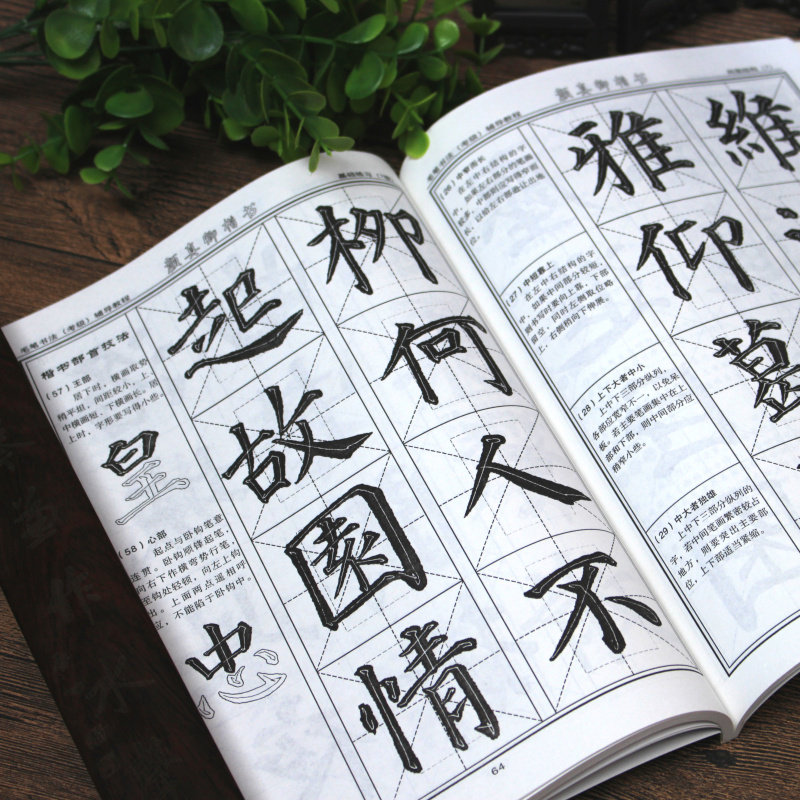 颜真卿楷书
毛笔书法（考级）辅导教程
楷书部首技法
（57）王部
居下时，横画取势
稍平组，间距较小，上
中横画短、下横画长。居
上时，字形要写得小些。
皇
（58）心部
起点与卧钩笔意
连贯。卧钩顺锋起笔，
向右下作横弯势行笔，
至钩处轻顿，向左上钩
出。上面两点遥相呼
应，不能陷于卧钩中。
忠
柳何人不
起故園情
64
颜真卿楷书
毛笔书法（考级）辅导教程
（26）中窄而长
在左中右结构的字
中，如果左右部分的笔画
较多，中部则应写得窄而
长，以给左右部避让出地
位。
（27）中短靠上
在左中右结构的字
中，如果中间部分较短，
则书写时要向上靠，下部
留空，同时左侧取位略
上、右侧稍向下伸展。
（28）上下大者中小
上中下三部分纵列，
各部应宽窄不一，以免呆
板。若主要笔画集中在上
部和下部，则中间部分应
稍窄小些。
（29）中大者独雄
上中下三部分纵列的
字，若中间笔画繁密较占
地方，则要突出主要部
位，上下部适当紧缩。
維
雅仰葛